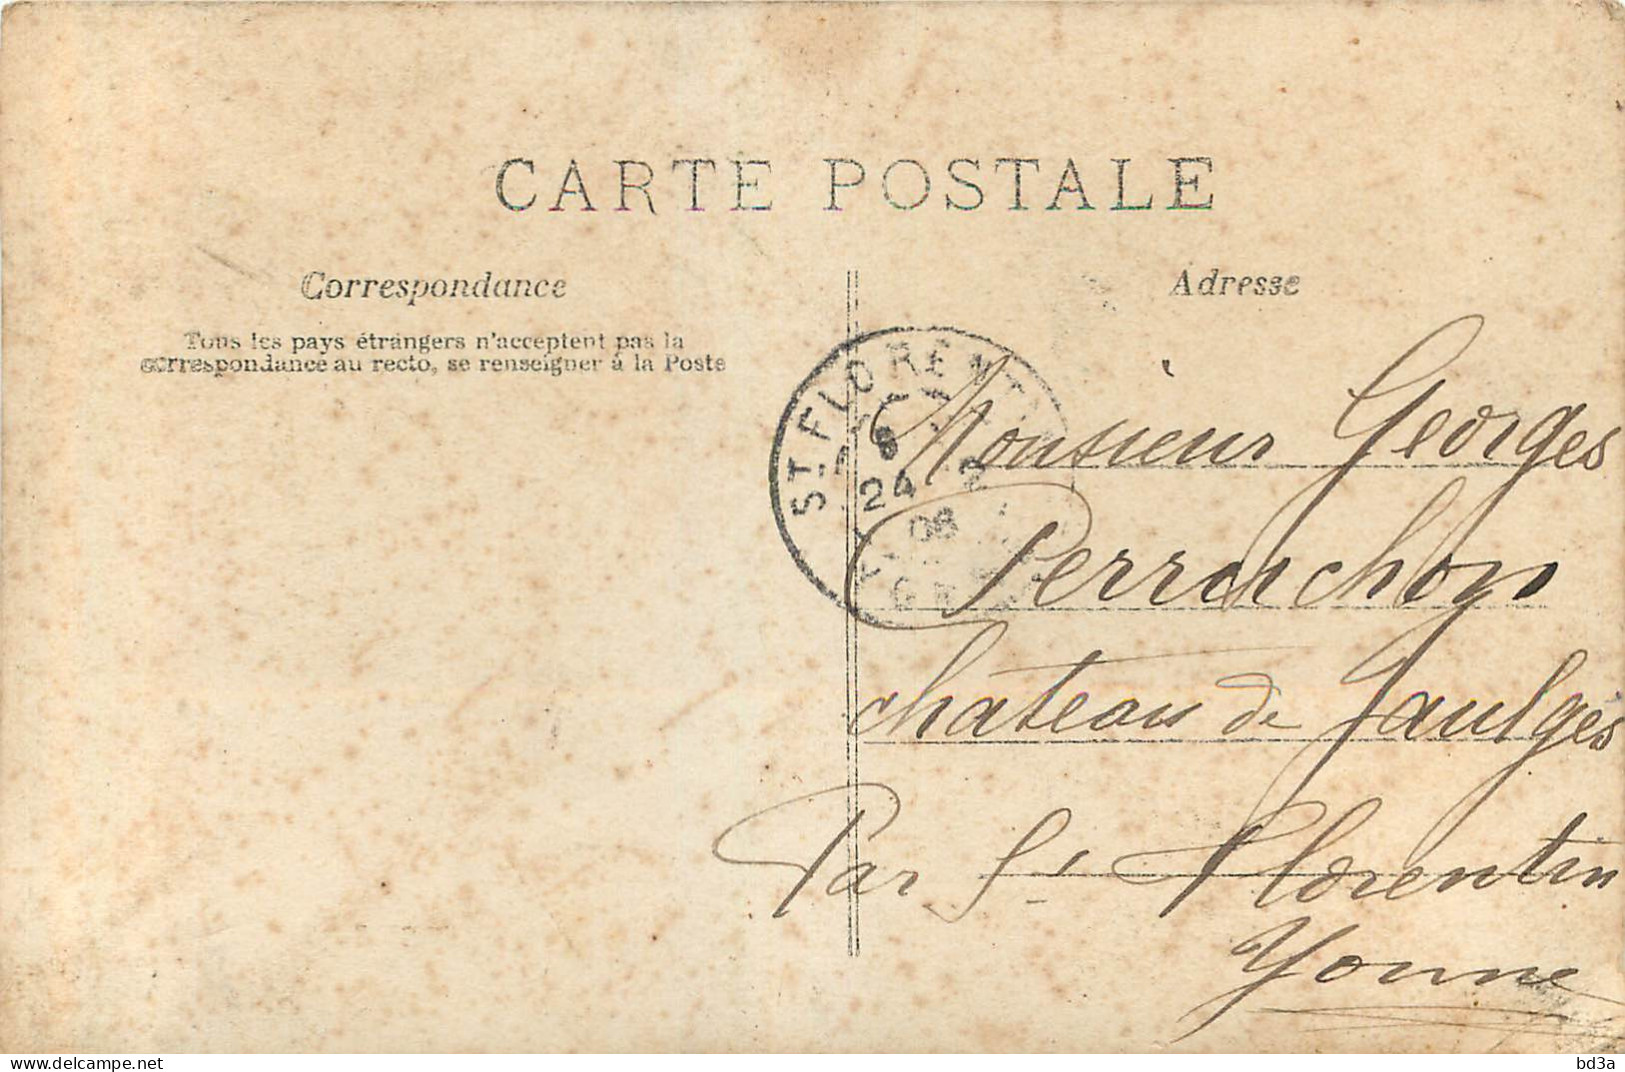 CARTE POSTALE
Correspondance
Adresse
Tous les pays étrangers n'acceptent pas la
correspondance au recto, se renseigner à la Poste
ST FLORENTIN
8
24 2
08
Monsieur Georges
Perruchon
château de Jaulges
Par St Florentin
Yonne
Delcampe.net
bd3a